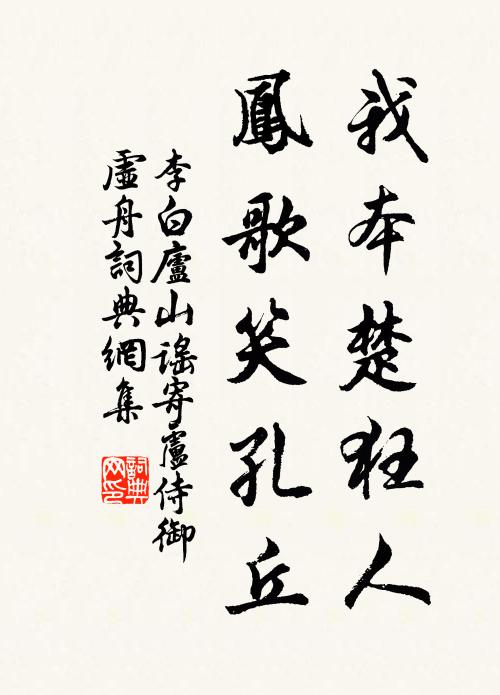 我本楚狂人
鳳歌笑孔丘
李白廬山謠寄盧侍御
虛舟詞典網集
詞典
网印